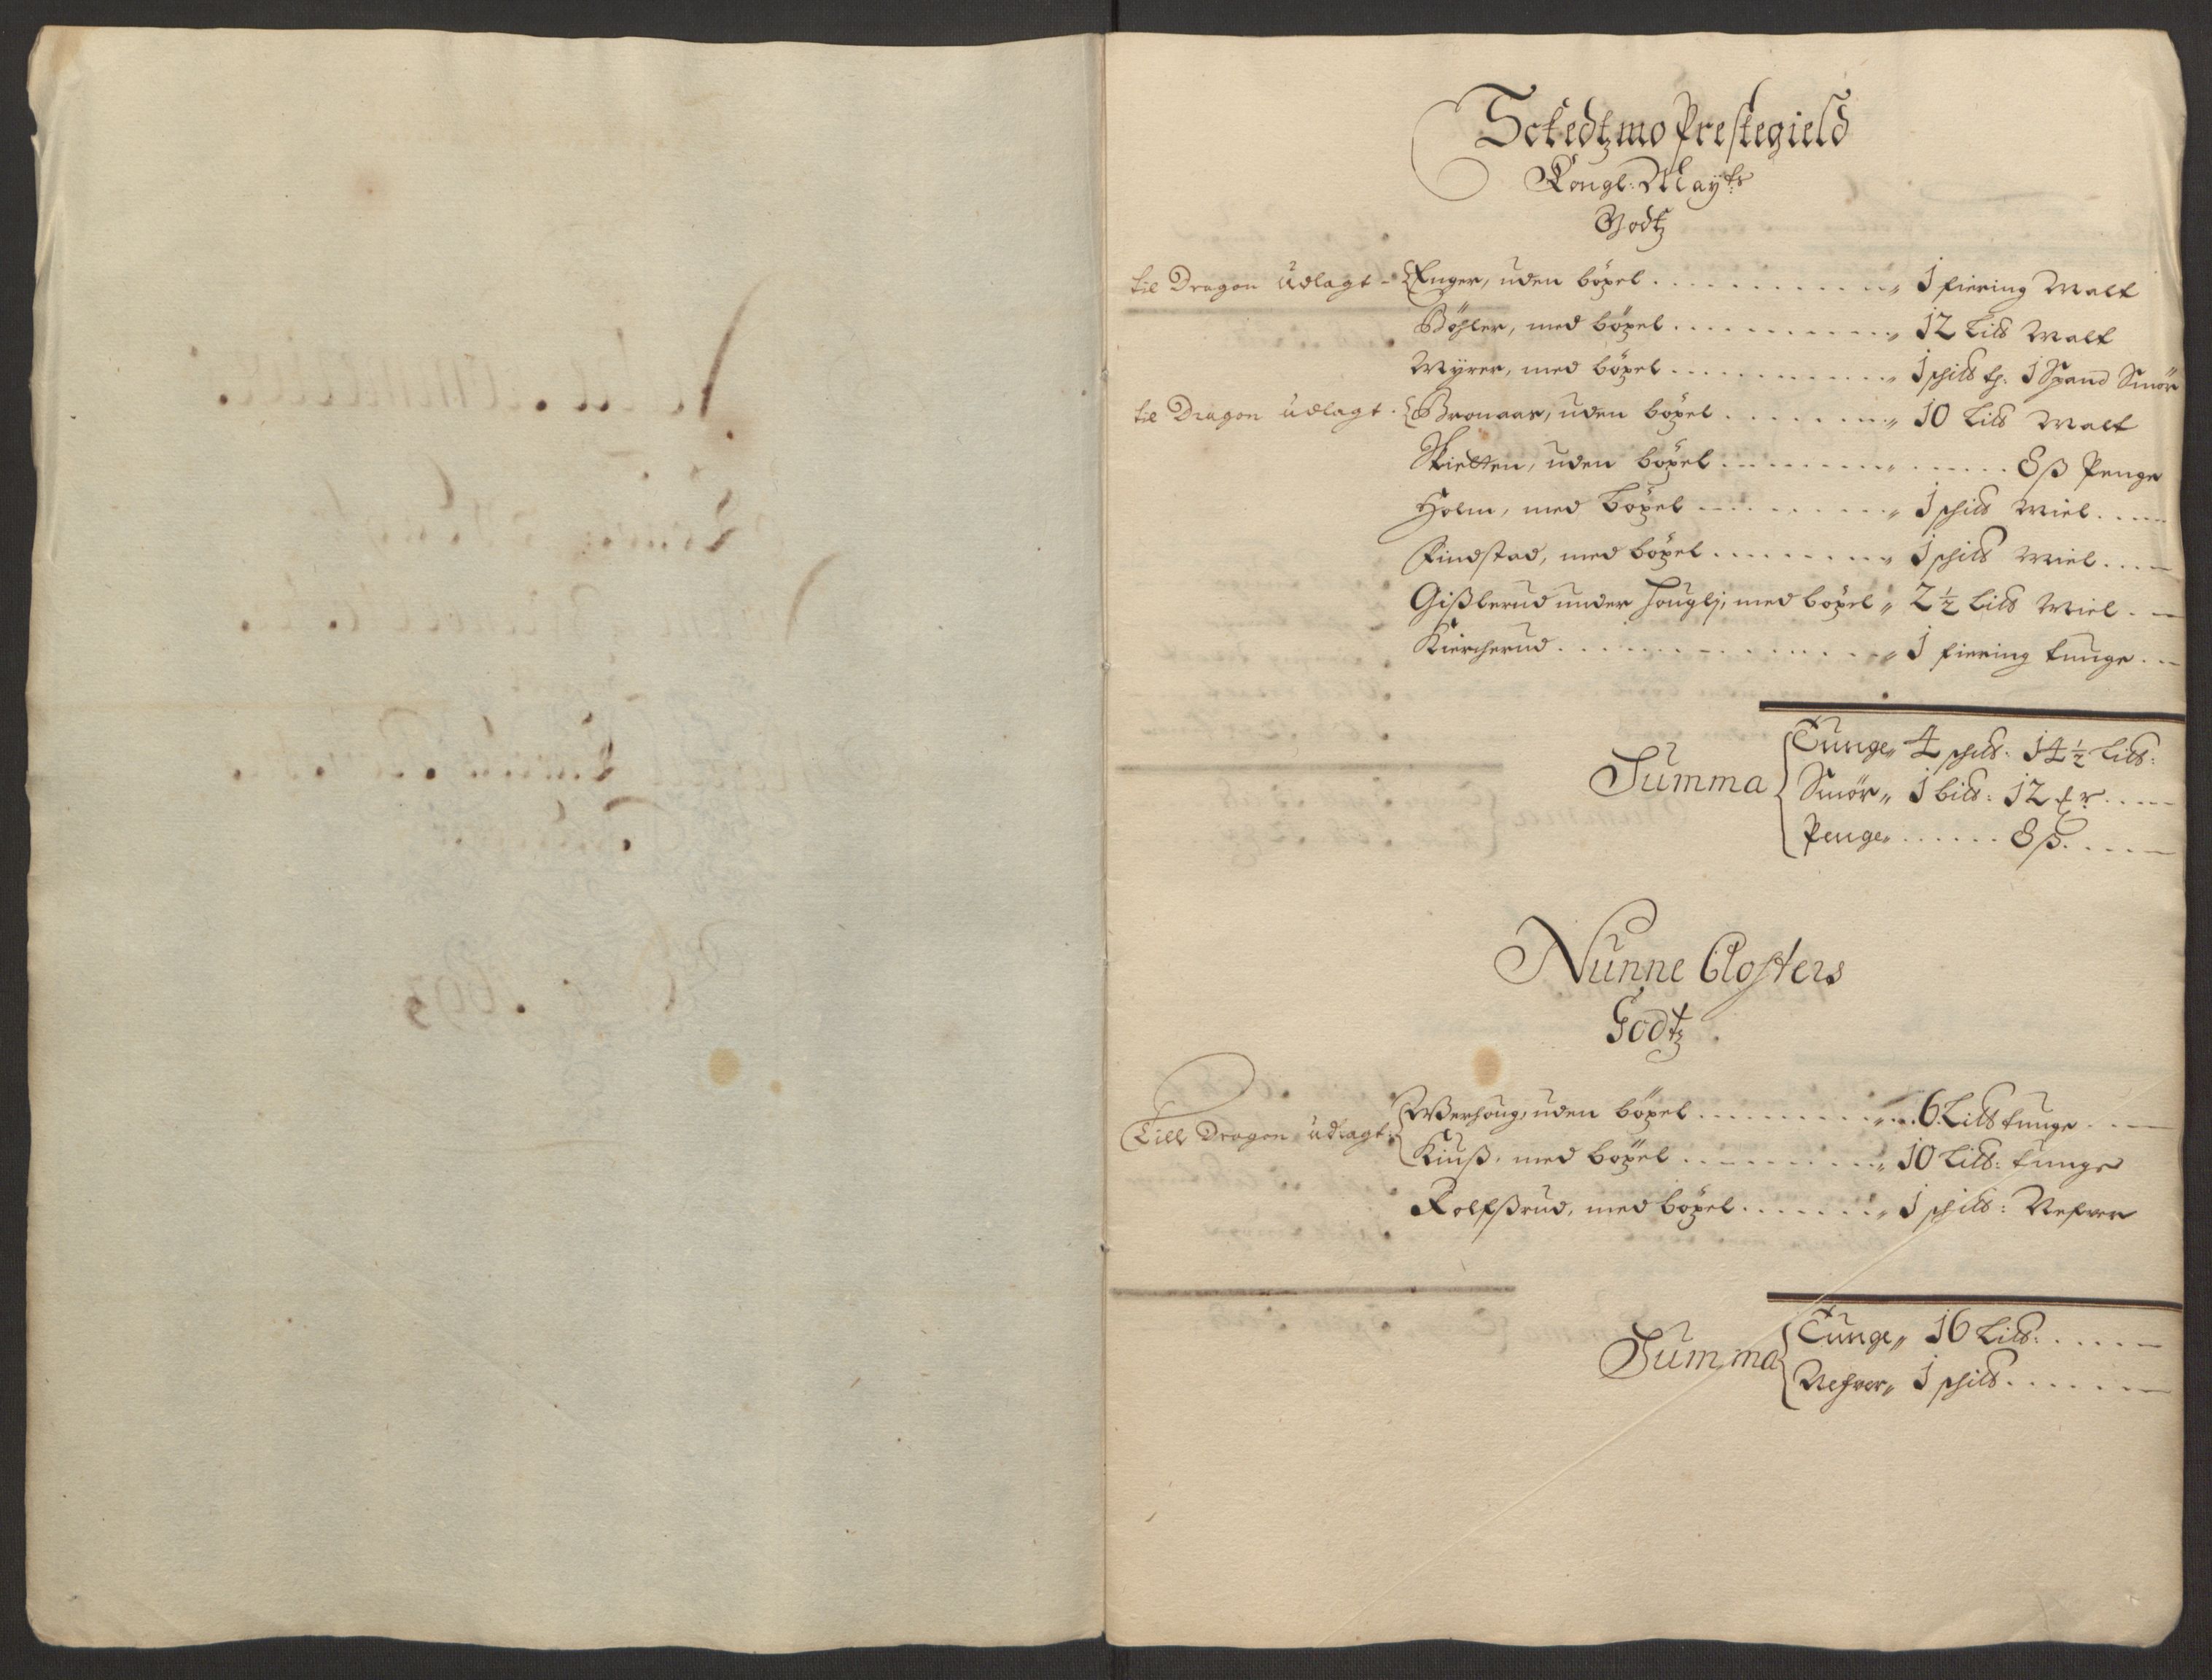 Sckedtzmo Prestegield
Kongl: Mayts
Godtz
til Dragon Udlagt - Enger, uden böxel . . . . . . . . „ 1 fiering Malt
Böhler, med böxel . . . . . . . . „ 12 Lild Malt
Myrer, med böxel . . . . . . . . „ 1 schild tz. 1 Spand Smör
til Dragon udlagt . Bronaas, uden böxel . . . . . . . „ 10 Lild Malt
Skietten, uden böxel . . . . . . . . „ . . . . . 8 ß Penge
Holm, med böxel . . . . . . . . „ 1 schild Miel . . . .
Findstad, med böxel . . . . . . . . „ 1 schild Miel . . . .
Gißlerud under Houglj, med böxel „ 2½ Lild Miel . —
Kiercherud . . . . . . . . . . . . „ 1 fiering tunge . . —
Summa
Tunge „ 4 schild: 14½ Lild:
Smör „ 1 bild: 12 . . . . —
Penge „ . . . . . . 8 ß . . . . —
Nunne Closters
Godtz
Till Dragon udlagt: Werhoug, uden böxel . . . . . . . . „ . . 6 Lild tunge . . —
Kiuß, med böxel . . . . . . . . „ 10 Lild: tunge
Rolfßrud, med böxel . . . . . . . „ 1 schild: Nefver
Summa
Tunge „ 16 Lild: . . . . . —
Nefver „ 1 schild . . . . . . —